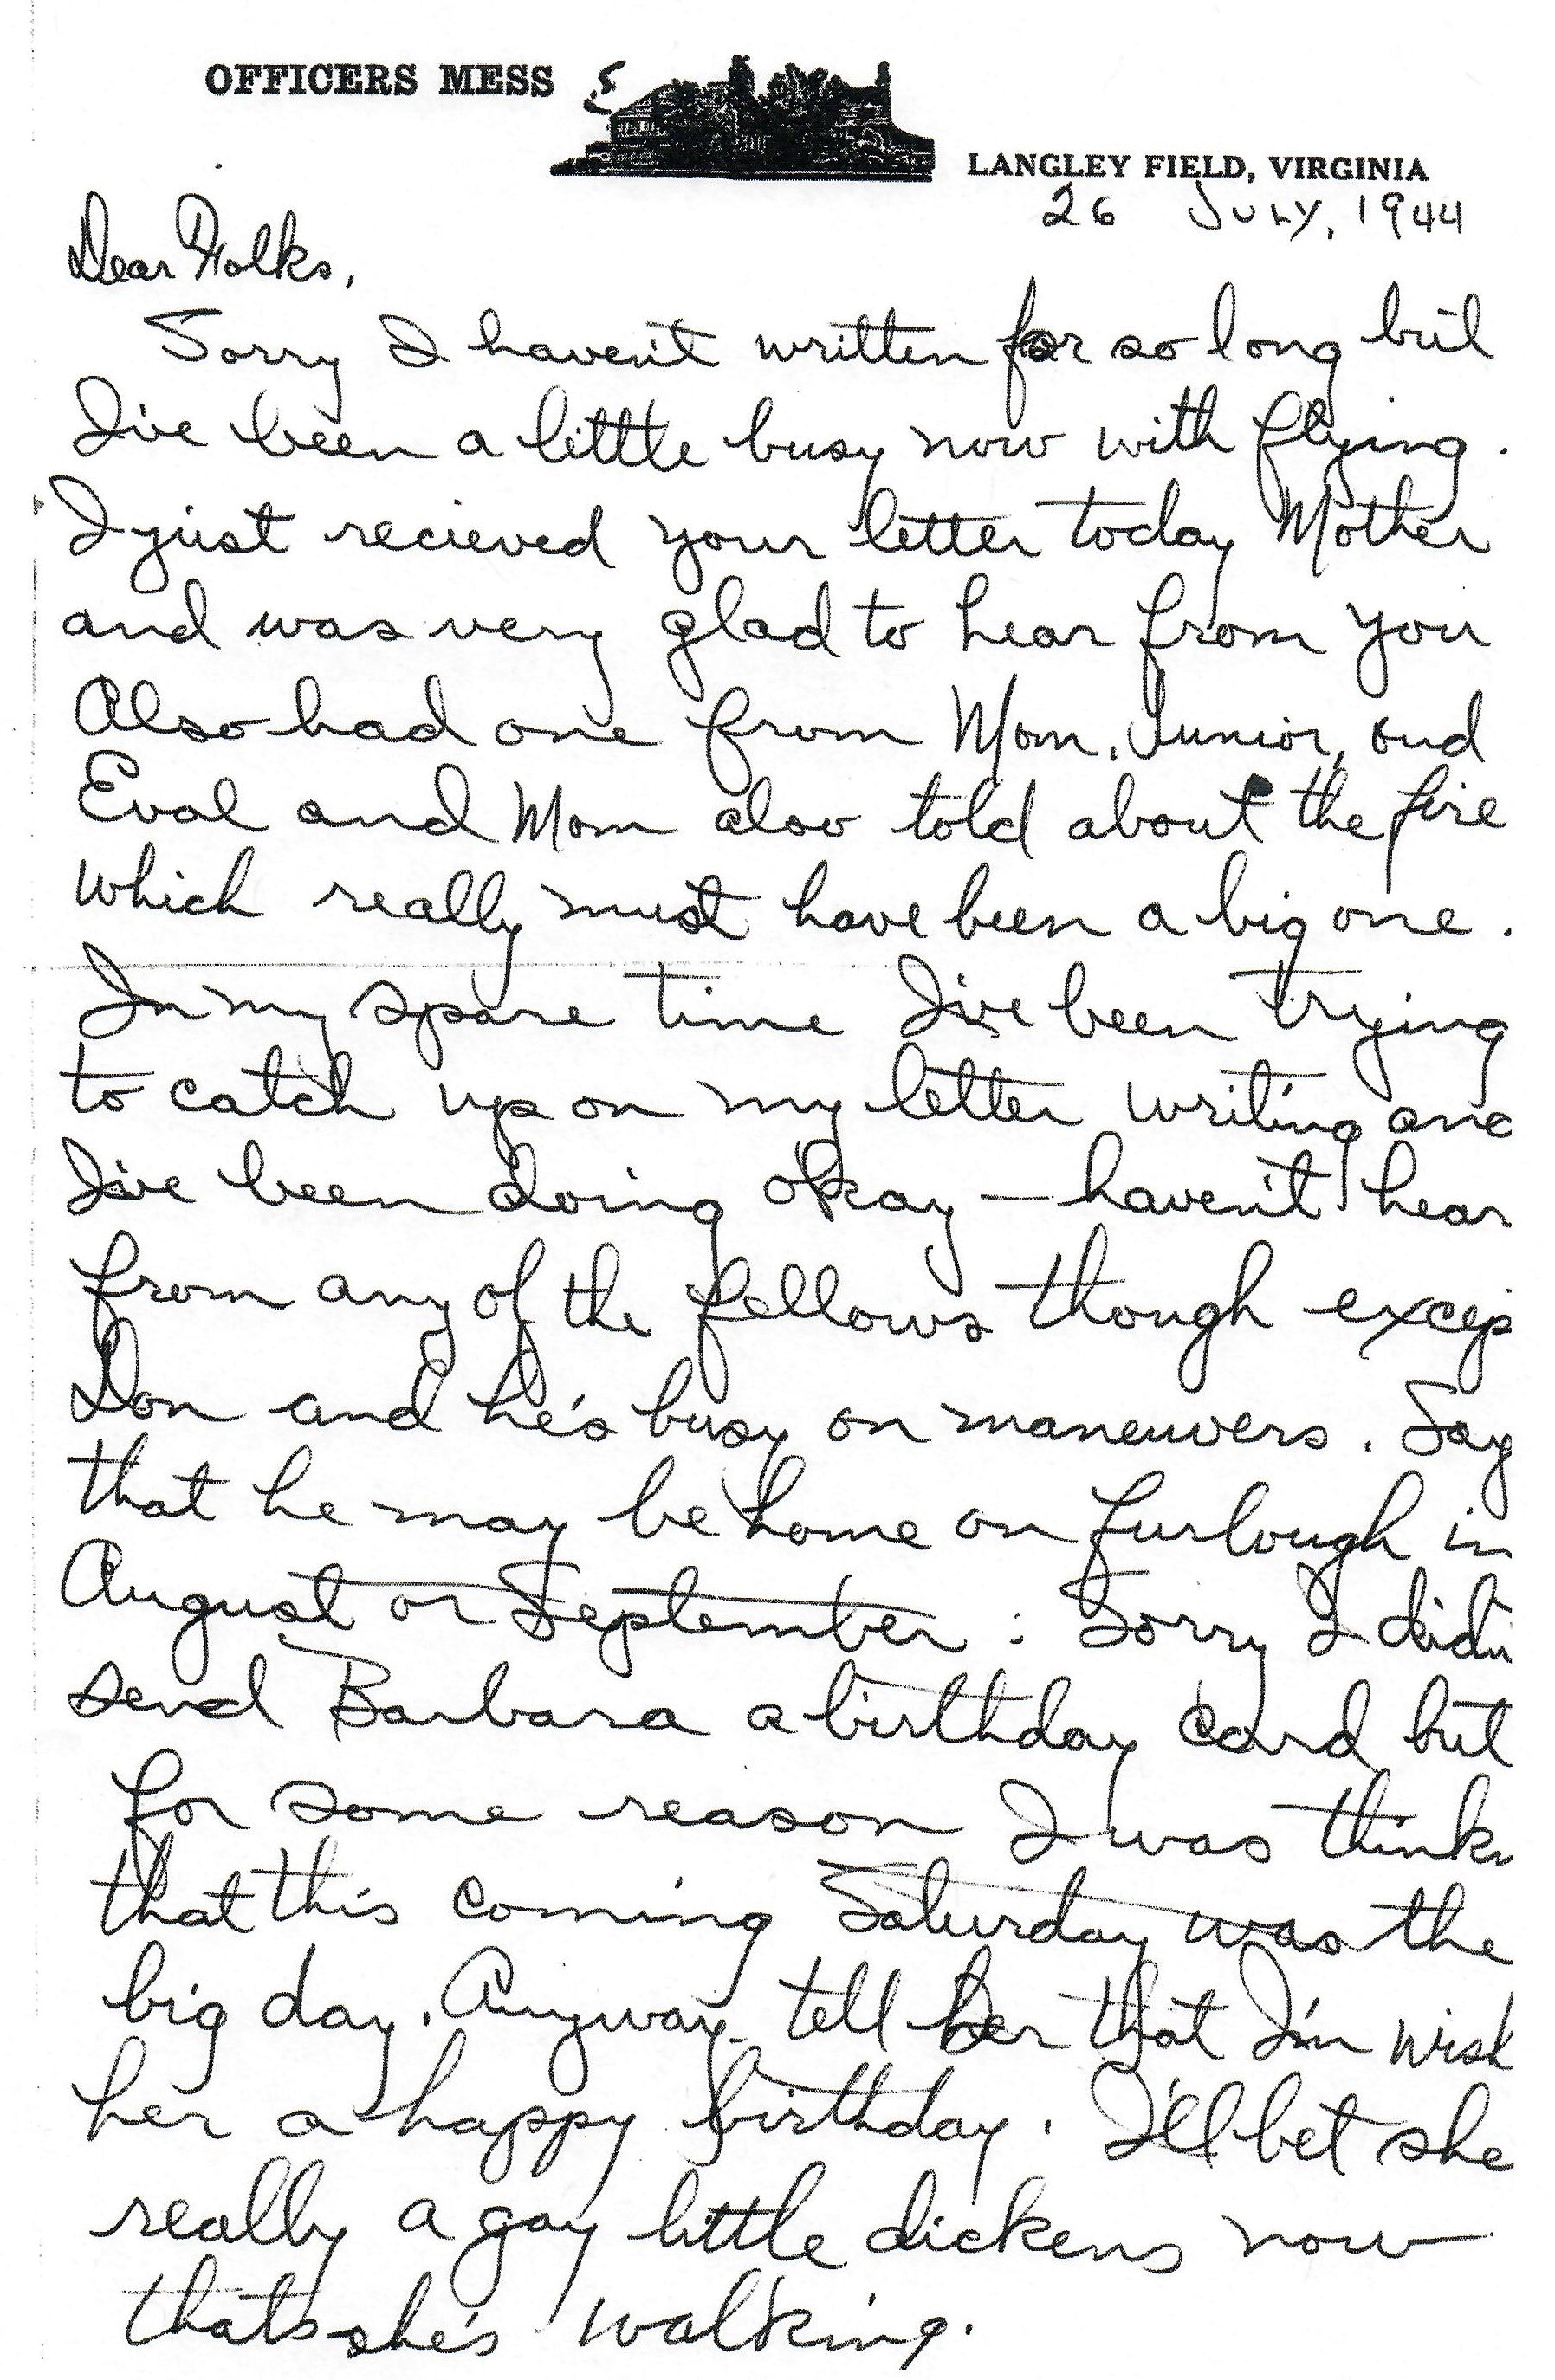 OFFICERS MESS
LANGLEY FIELD, VIRGINIA
26 JULY, 1944
Dear Folks,
Sorry I haven't written for so long but
I've been a little busy now with flying.
I just recieved your letter today Mother
and was very glad to hear from you
Also had one from Mom, Junior, and
Eval and Mom also told about the fire
which really must have been a big one.
In my spare time I've been trying
to catch up on my letter writing and
I've been doing okay — haven't hear
from any of the fellows though excep
Don and he's busy on maneuvers. Say
that he may be home on furlough in
August or September. Sorry I didn
send Barbara a birthday card but
for some reason I was thinki
that this coming Saturday was the
big day. Anyway tell her that I'm wish
her a happy birthday. I'll bet she
really a gay little dickens now
thats she's walking.